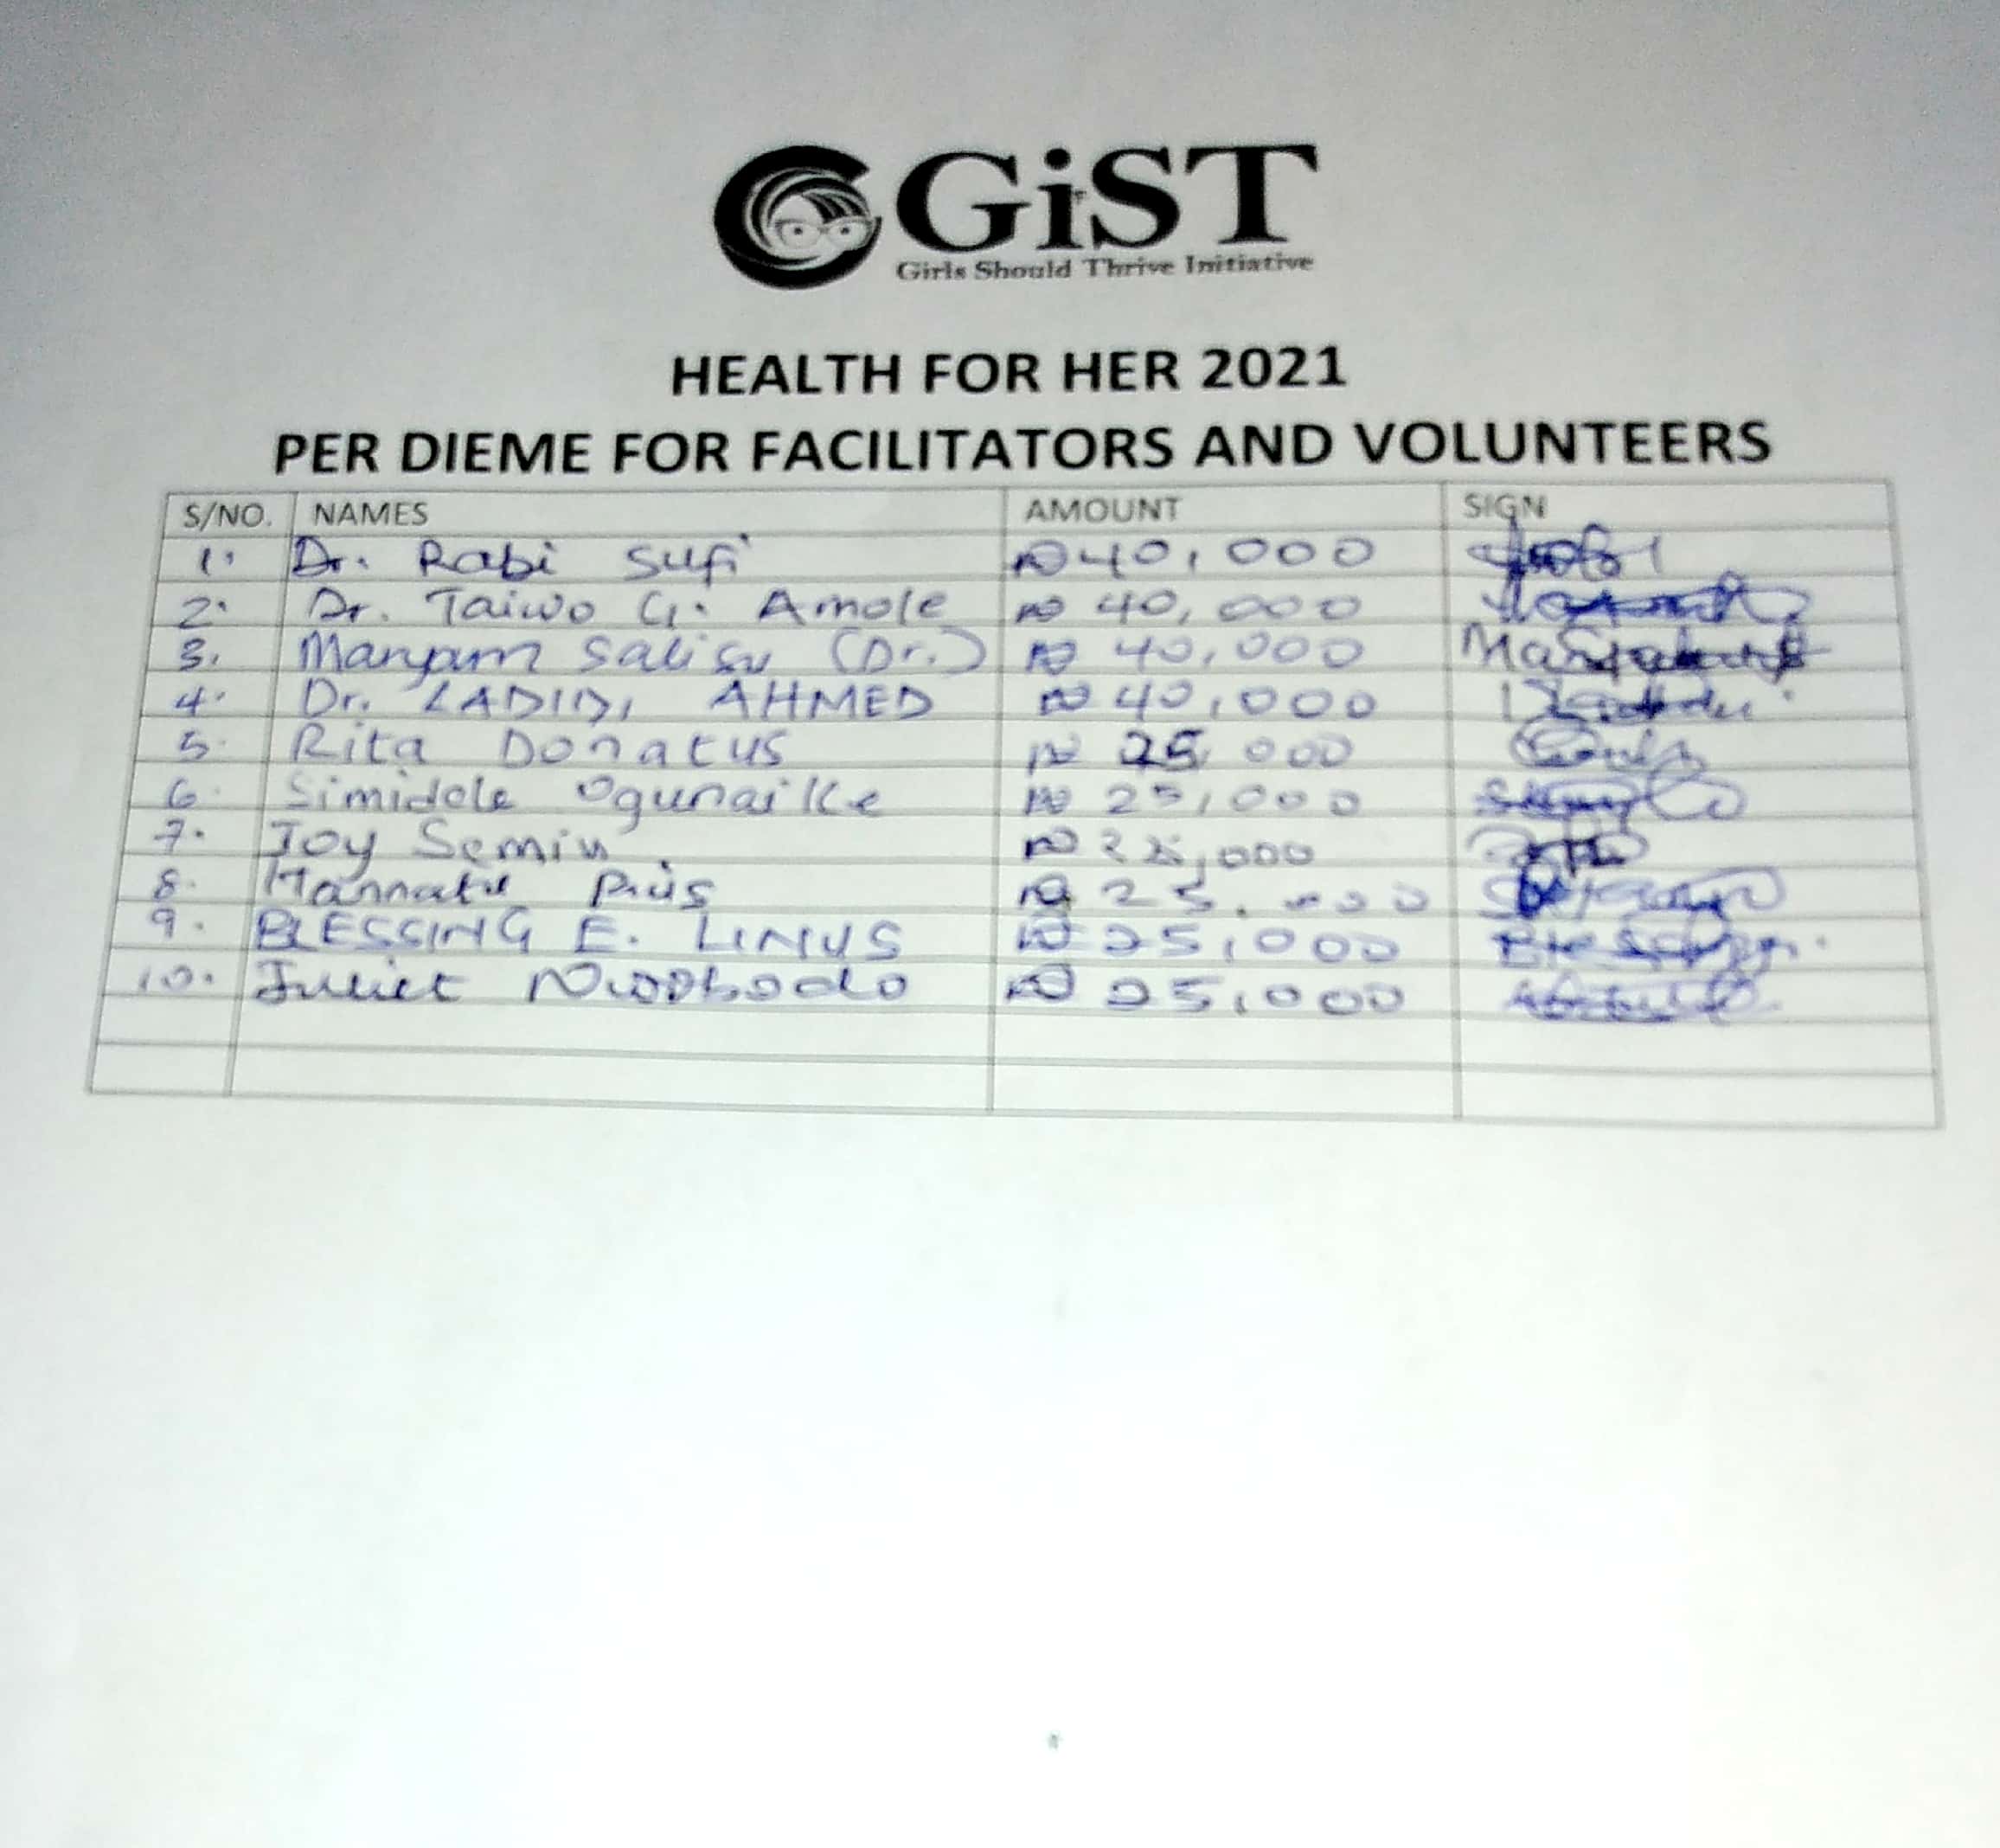 GiST
Girls Should Thrive Initiative
HEALTH FOR HER 2021
PER DIEME FOR FACILITATORS AND VOLUNTEERS
S/NO. NAMES AMOUNT SIGN
1. Dr. Rabi Sufi ₦40,000
2. Dr. Taiwo G. Amole ₦40,000
3. Maryam Salisu (Dr.) ₦40,000
4. Dr. LADIDI AHMED ₦40,000
5. Rita Donatus ₦25,000
6. Simidele Ogunaike ₦25,000
7. Joy ₦25,000
8. Pius ₦25,000
9. BLESSING E. LINUS ₦25,000
10. Juliet Nwobodo ₦25,000